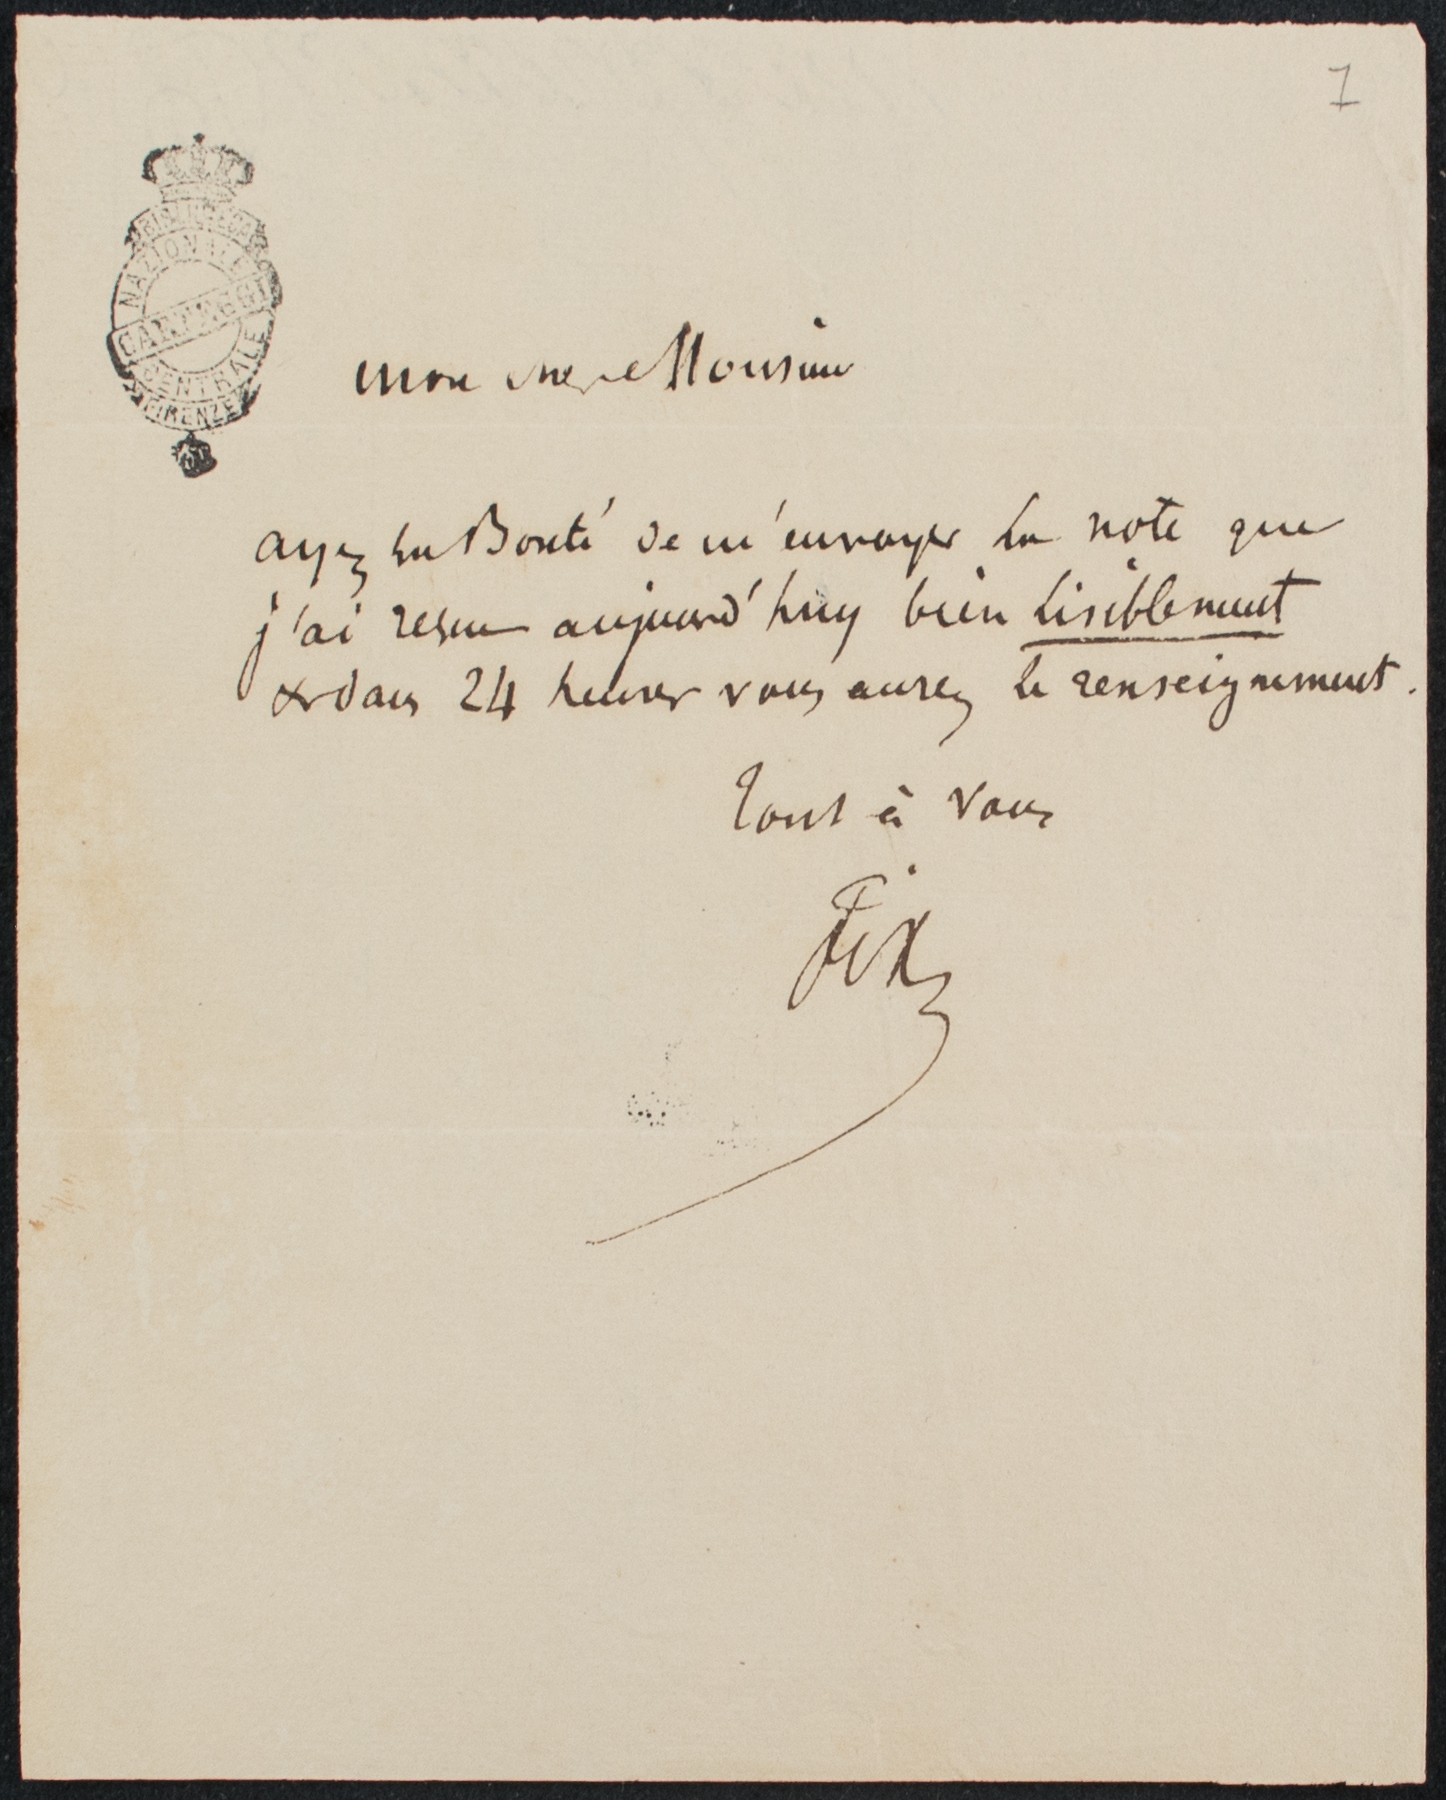 1
BIBLIOTECA
NAZIONALE
CARTEGGI
CENTRALE
FIRENZE
Mon cher Monsieur
ayez la Bonté de m'envoyer la note que
j'ai reçue aujourd'huy bien lisiblement
& dans 24 heures vous aurez le renseignement.
Tout à vous
Fix